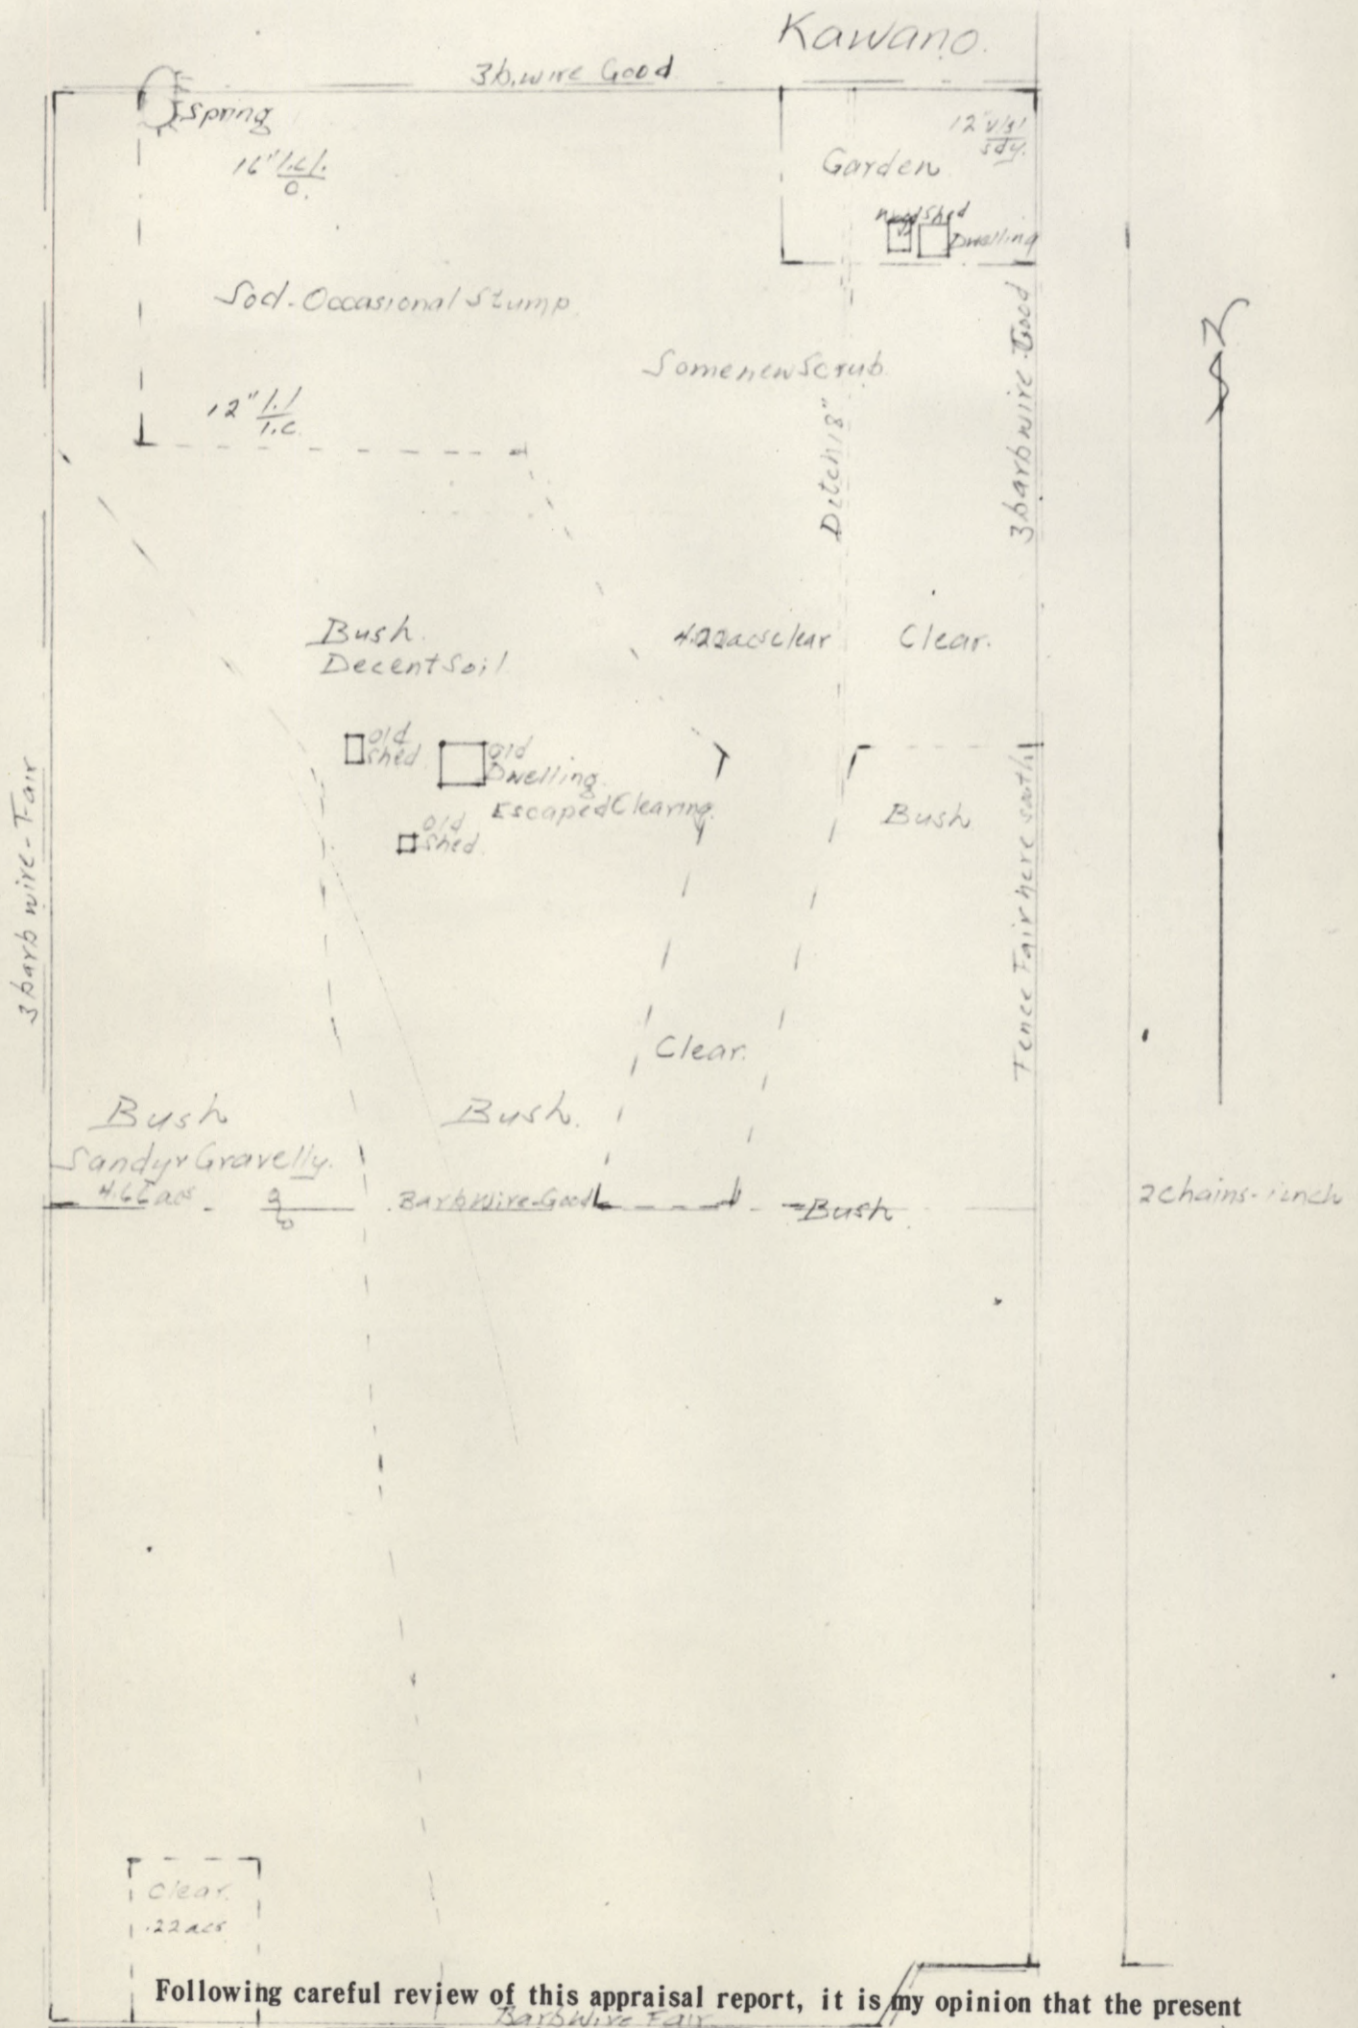 Kawano.
3b.wire Good
Spring
12" v/sl
sdy.
16" l.cl.
O.
Garden
Wood Shed
Dwelling
Sod. Occasional Stump.
3 barb wire - Good
Some new Scrub.
12" l.l
l.c.
Ditch 18"
Bush.
Decent Soil
4.22 acs clear
Clear.
Old
Shed.
Old
Dwelling.
Escaped Clearing.
Old
Shed.
Bush
3 barb wire - Fair
Fence Fair here south
Clear.
Bush
Sandy & Gravelly.
4.66 acs
Bush.
Barb Wire-Good
Bush
2 chains - 1 inch
Clear.
.22 acs
Following careful review of this appraisal report, it is my opinion that the present
Barb Wire Fair